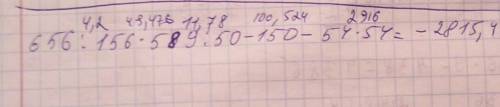 4,2 49,476 11,78 100,524 2916
656 : 156 · 589 : 50 - 150 - 54 · 54 = - 2815,4